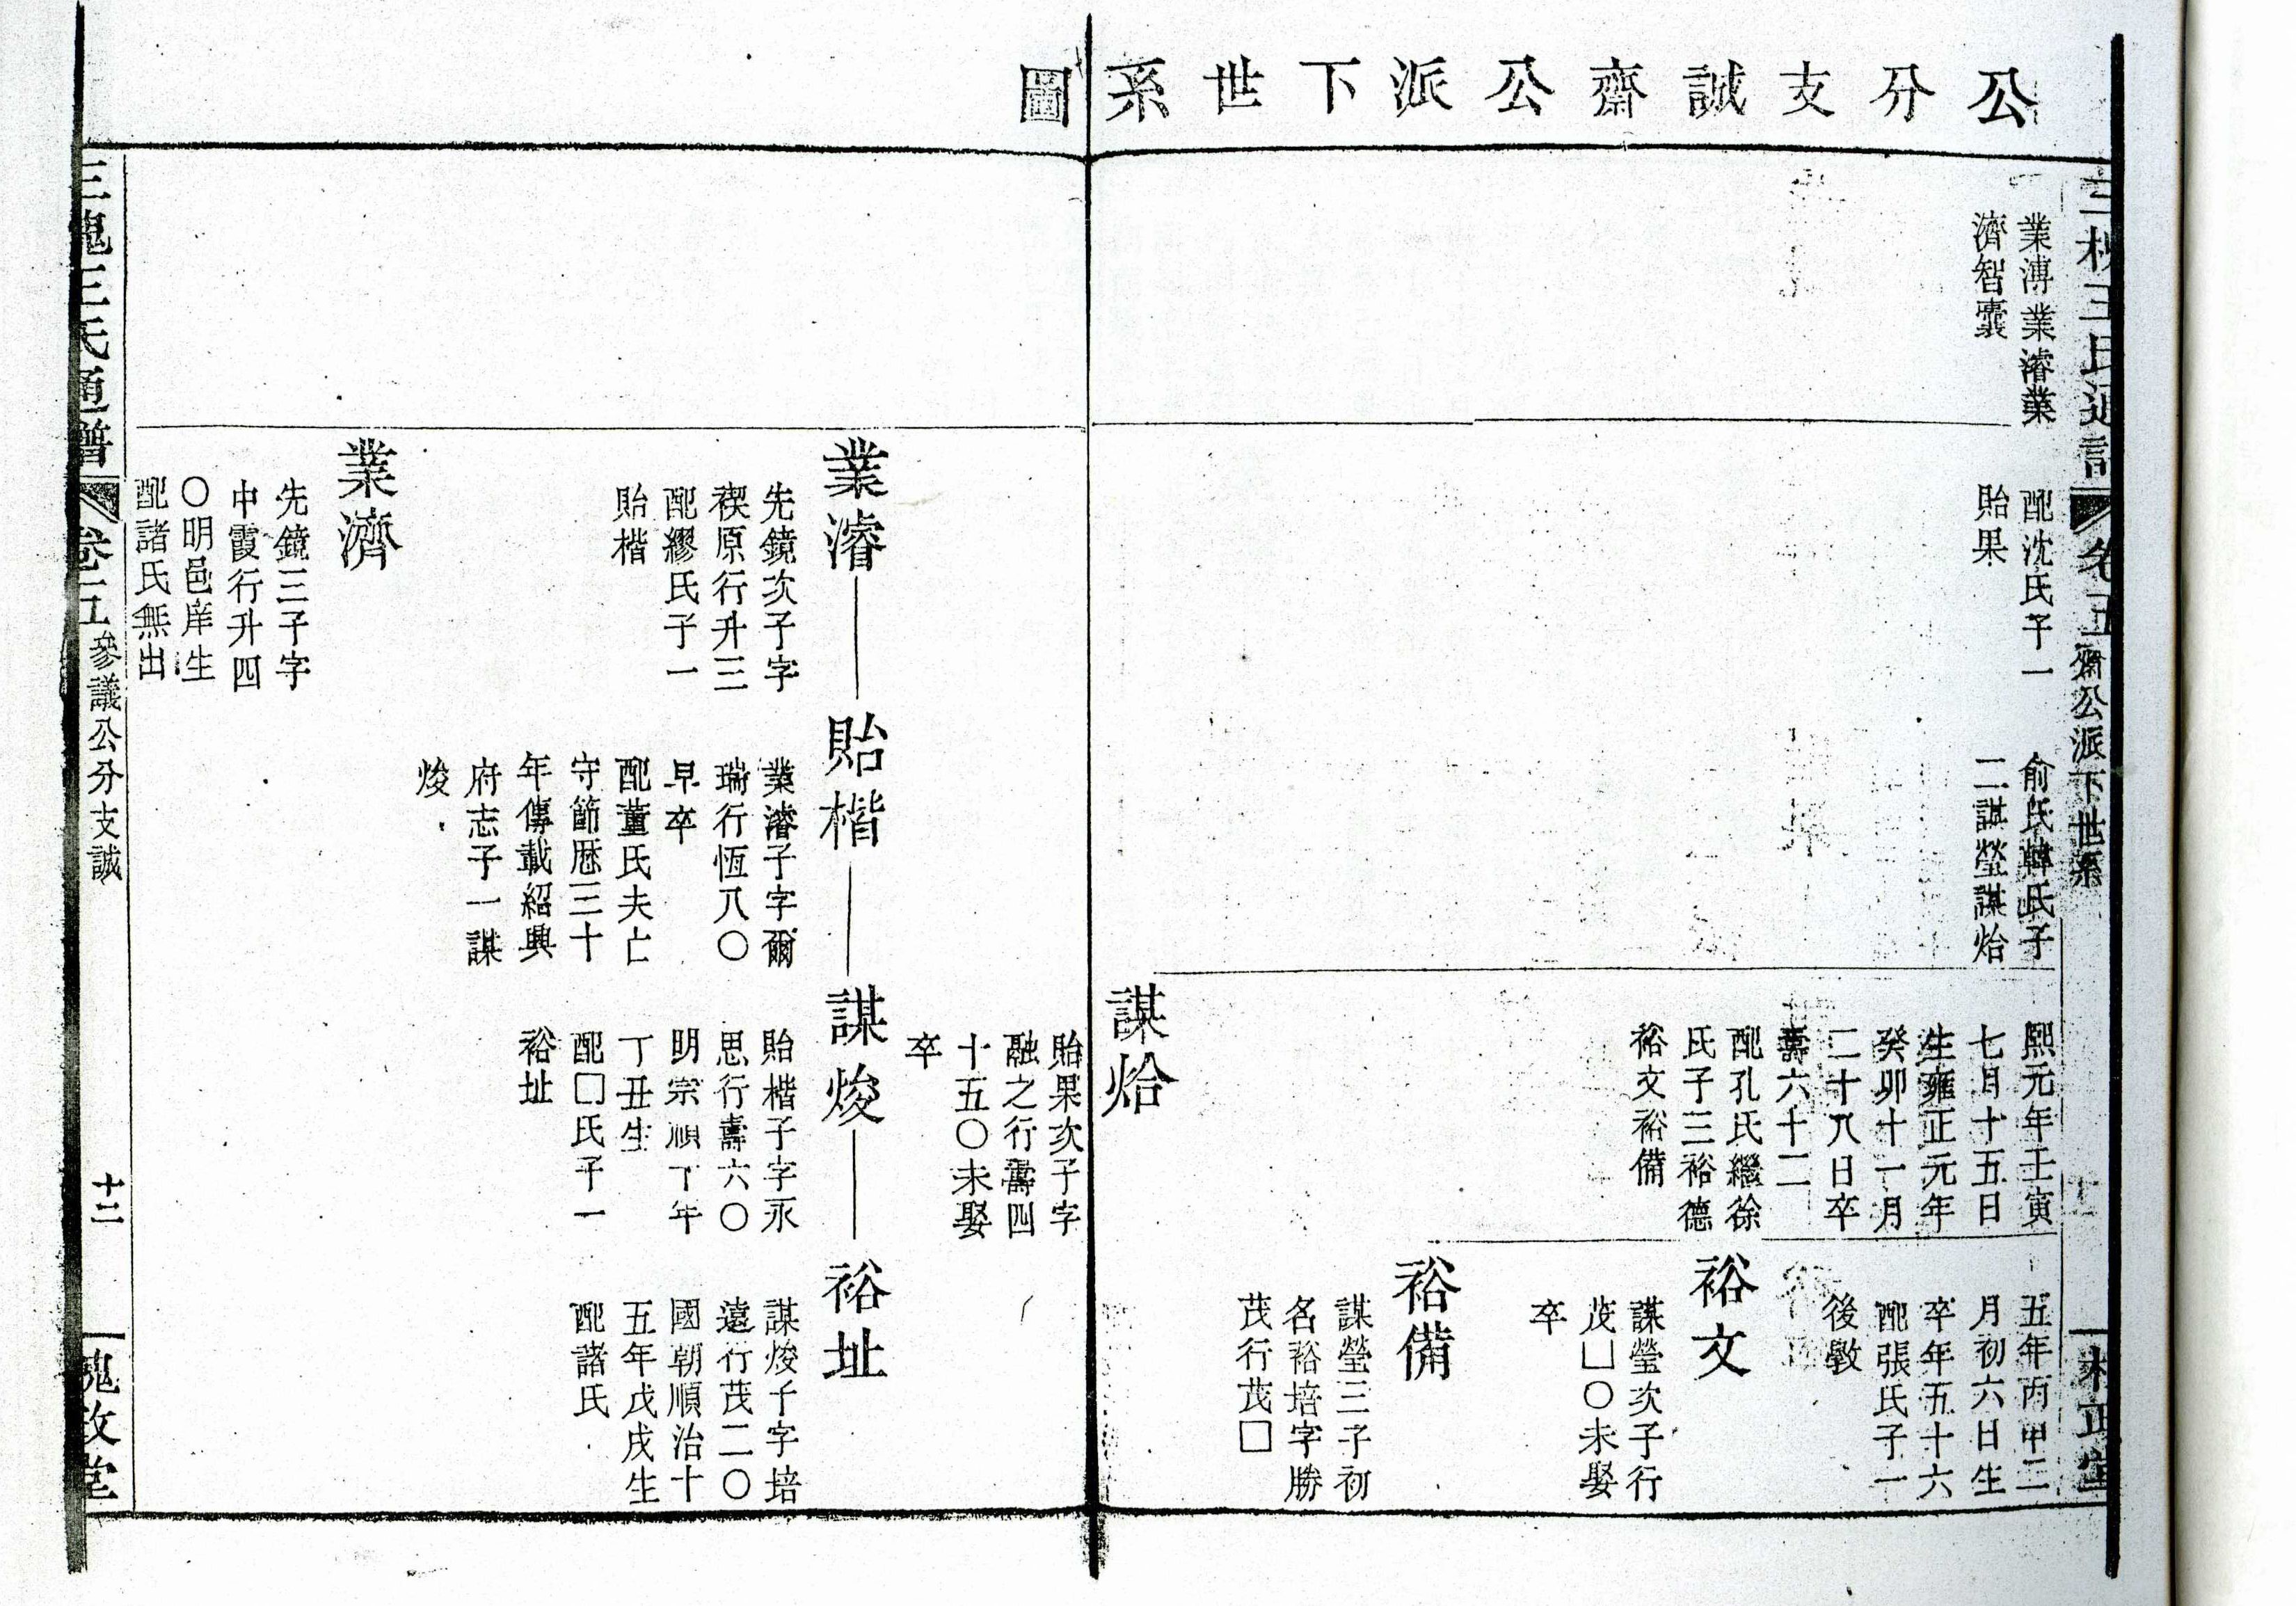 公分支誠齋公派下世系圖
業溥業濬業
濟智囊
配沈氏子一
貽果
俞氏韓氏子
二謀瑩謀烚
熙元年壬寅
七月十五日
生雍正元年
癸卯十一月
二十八日卒
壽六十二
配孔氏繼徐
氏子三裕德
裕文裕備
五年丙申二
月初六日生
卒年五十六
配張氏子一
後斅
裕文
謀瑩次子行
茂□○未娶
卒
裕備
謀瑩三子初
名裕培字勝
茂行茂□
謀烚
貽果次子字
融之行壽四
十五○未娶
卒
業濬
先鏡次子字
禊原行升三
配繆氏子一
貽楷
貽楷
業濬子字爾
瑞行恆八○
早卒
配董氏夫亡
守節歷三十
年傳載紹興
府志子一謀
焌
謀焌
貽楷子字永
思行壽六○
明崇禎丁年
丁丑生
配□氏子一
裕址
裕址
謀焌子字培
遠行茂二○
國朝順治十
五年戊戌生
配諸氏
業濟
先鏡三子字
中霞行升四
○明邑庠生
配諸氏無出
三槐王氏通譜
卷五
參議公分支誠
齋公派下世系
十二
槐政堂